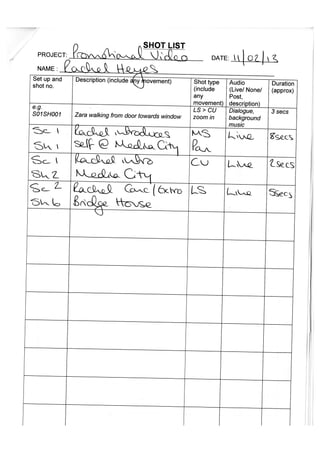 SHOT LIST
PROJECT: Promotional Video DATE: 11/02/13
NAME: Rachel Hayes
Set up and shot no. Description (include any movement) Shot type (include any movement) Audio (Live/ None/ Post, description) Duration (approx)
e.g. S01SH001 Zara walking from door towards window LS > CU zoom in Dialogue, background music 3 secs
Sc 1 Rachel introduces MS Live 8secs
Sh 1 self @ Media City Pan
Sc 1 Rachel intro CU Live 2secs
Sh 2 Media City
Sc 2 Rachel Conc/Extro LS Live 5secs
Sh 6 Bridge House